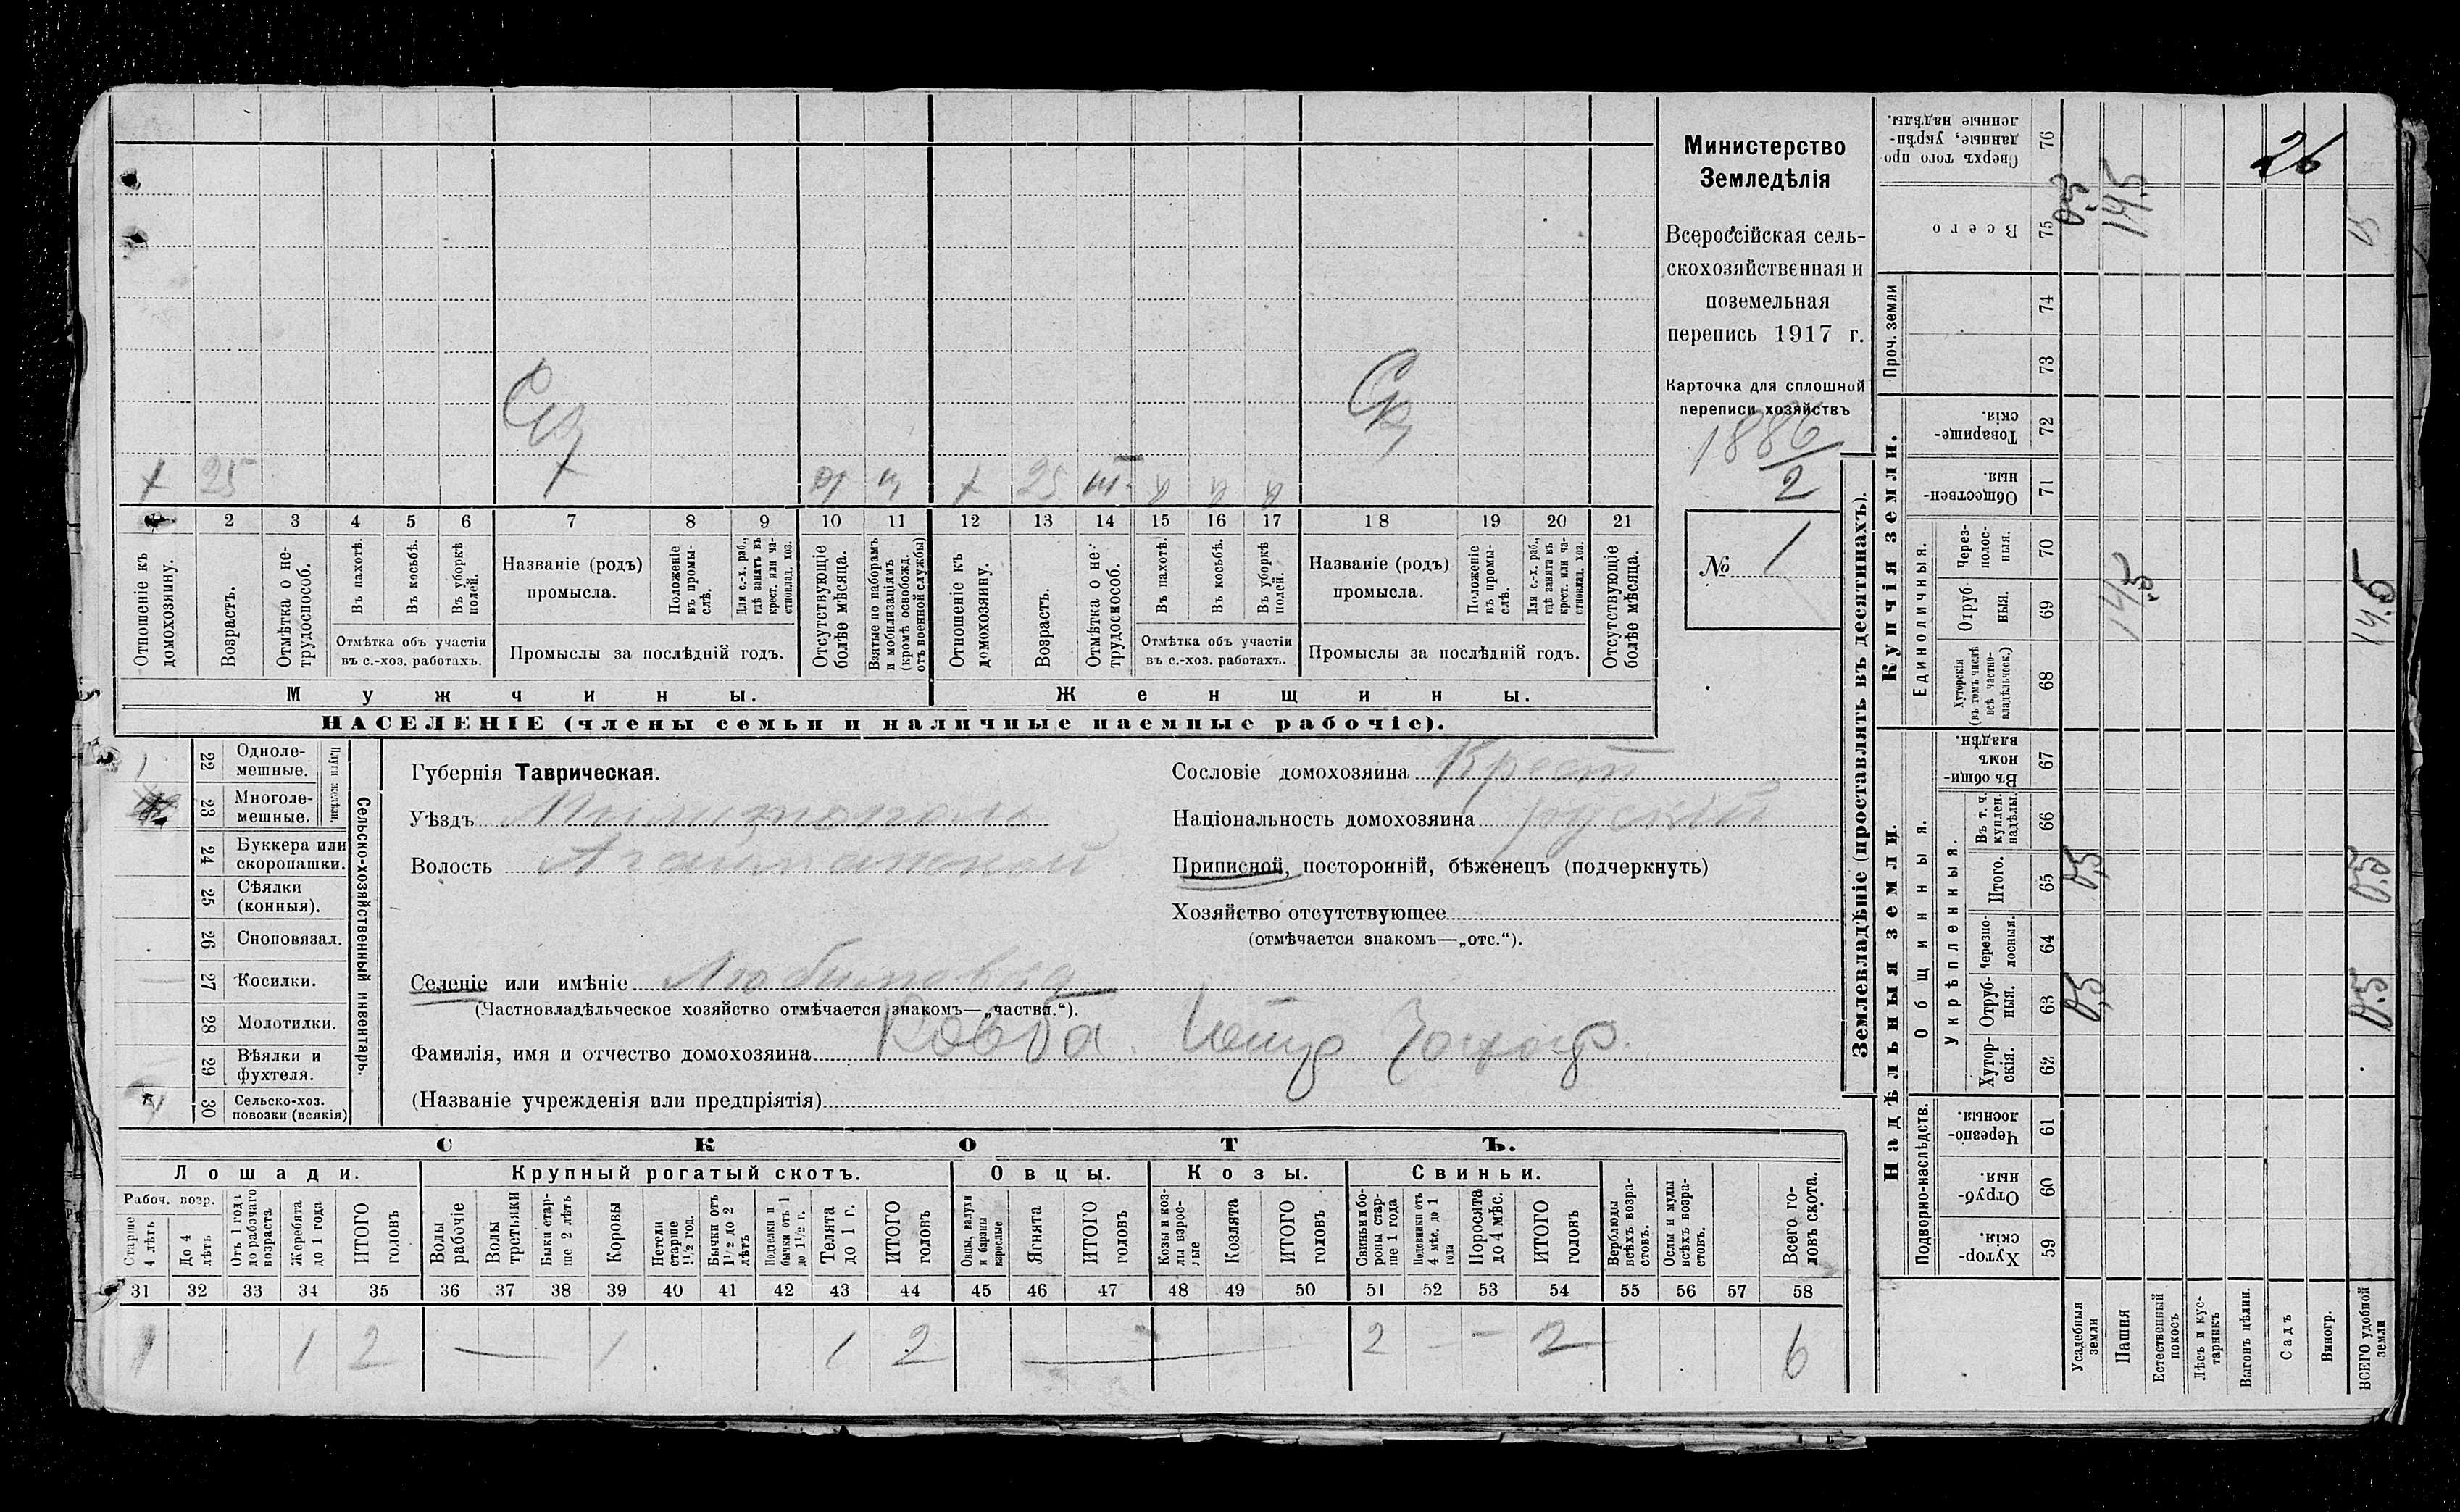 26
Министерство
Земледѣлія
Всероссійская сель-
скохозяйственная и
поземельная
перепись 1917 г.
Карточка для сплошной
переписи хозяйствъ
1886/2
№ 1
х 25 х
х 25
1 2 3 4 5 6 7 8 9 10 11 12 13 14 15 16 17 18 19 20 21
Отношеніе къ домохозяину.
Возрастъ.
Отмѣтка о не-
трудоспособ.
Въ пахотѣ.
Въ косьбѣ.
Въ уборкѣ полей.
Отмѣтка объ участіи
въ с.-хоз. работахъ.
Названіе (родъ)
промысла.
Положеніе въ промы-
слѣ.
Для с.-х. раб., гдѣ занятъ въ крест. или ча-
стновлад. хоз.
Промыслы за послѣдній годъ.
Отсутствующіе болѣе мѣсяца.
Взятые по наборамъ и мобилизаціямъ (кромѣ освобожд. отъ военной службы)
Отношеніе къ домохозяину.
Возрастъ.
Отмѣтка о не-
трудоспособ.
Въ пахотѣ.
Въ косьбѣ.
Въ уборкѣ полей.
Отмѣтка объ участіи
въ с.-хоз. работахъ.
Названіе (родъ)
промысла.
Положеніе въ промы-
слѣ.
Для с.-х. раб., гдѣ занята въ крест. или ча-
стновлад. хоз.
Промыслы за послѣдній годъ.
Отсутствующіе болѣе мѣсяца.
Мужчины. Женщины.
НАСЕЛЕНІЕ (члены семьи и наличные наемные рабочіе).
22 Одноле-
мешные.
23 Многоле-
мешные.
Плуги желѣзн.
24 Буккера или
скоропашки.
25 Сѣялки
(конныя).
26 Сноповязал.
27 Косилки.
28 Молотилки.
29 Вѣялки и
фухтеля.
30 Сельско-хоз.
повозки (всякія)
Сельско-хозяйственный инвентарь.
Губернія Таврическая.
Уѣздъ Мелитополь
Волость Агайманской
Селеніе или имѣніе Любимовка
(Частновладѣльческое хозяйство отмѣчается знакомъ—„частвл.“).
Фамилія, имя и отчество домохозяина Ковба Петр Захар.
(Названіе учрежденія или предпріятія)
Сословіе домохозяина Крест
Національность домохозяина русскій
Приписной, посторонній, бѣженецъ (подчеркнуть)
Хозяйство отсутствующее
(отмѣчается знакомъ—„отс.“).
СКОТЪ.
Лошади. Крупный рогатый скотъ. Овцы. Козы. Свиньи.
Рабоч. возр.
Старше 4 лѣтъ
До 4 лѣтъ
Отъ 1 года до рабочаго возраста
Жеребята до 1 года
ИТОГО головъ
Волы рабочіе
Волы третьяки
Быки стар-
ше 2 лѣтъ
Коровы
Нетели старше 1½ год.
Бычки отъ 1½ до 2 лѣтъ
Подтелки и бычки отъ 1 до 1½ г.
Телята до 1 г.
ИТОГО головъ
Овцы, валухи и бараны взрослые
Ягнята
ИТОГО головъ
Козы и коз-
лы взрос-
лые
Козлята
ИТОГО головъ
Свиньи и бо-
ровы стар-
ше 1 года
Подсвинки отъ 4 мѣс. до 1 года
Поросята до 4 мѣс.
ИТОГО головъ
Верблюды всѣхъ возра-
стовъ.
Ослы и мулы всѣхъ возра-
стовъ.
Всего го-
ловъ скота.
31 32 33 34 35 36 37 38 39 40 41 42 43 44 45 46 47 48 49 50 51 52 53 54 55 56 57 58
1 1 2 — 1 1 2 — 2 — — 2 6
Землевладѣніе (проставлять въ десятинахъ).
Надѣльныя земли. Купчія земли.
Подворно-наслѣдств.
Общинныя.
Укрѣпленныя.
Единоличныя.
Проч. земли
Хутор-
скія. 59
Отруб-
ныя. 60
Черезпо-
лосныя. 61
Хутор-
скія. 62
Отруб-
ныя. 63
Черезпо-
лосныя. 64
Итого. 65
Въ т. ч. куплен. надѣлы. 66
Въ общи-
номъ владѣн. 67
Хуторскія (въ томъ числѣ всѣ частно-
владѣльческ.) 68
Отруб
ныя. 69
Через-
полос-
ныя. 70
Обществен-
ныя 71
Товарище-
скія. 72
73
74
Всего 75
Сверхъ того про-
данные, укрѣп-
ленные надѣлы. 76
Усадебныя земли 0,5 0,5 0,5
Пашня 14,5 14.5
Естественный покосъ
Лѣсъ и кус-
тарникъ
Выгонъ цѣлин.
Садъ
Виногр.
ВСЕГО удобной земли 0.5 0.5 14.5 15